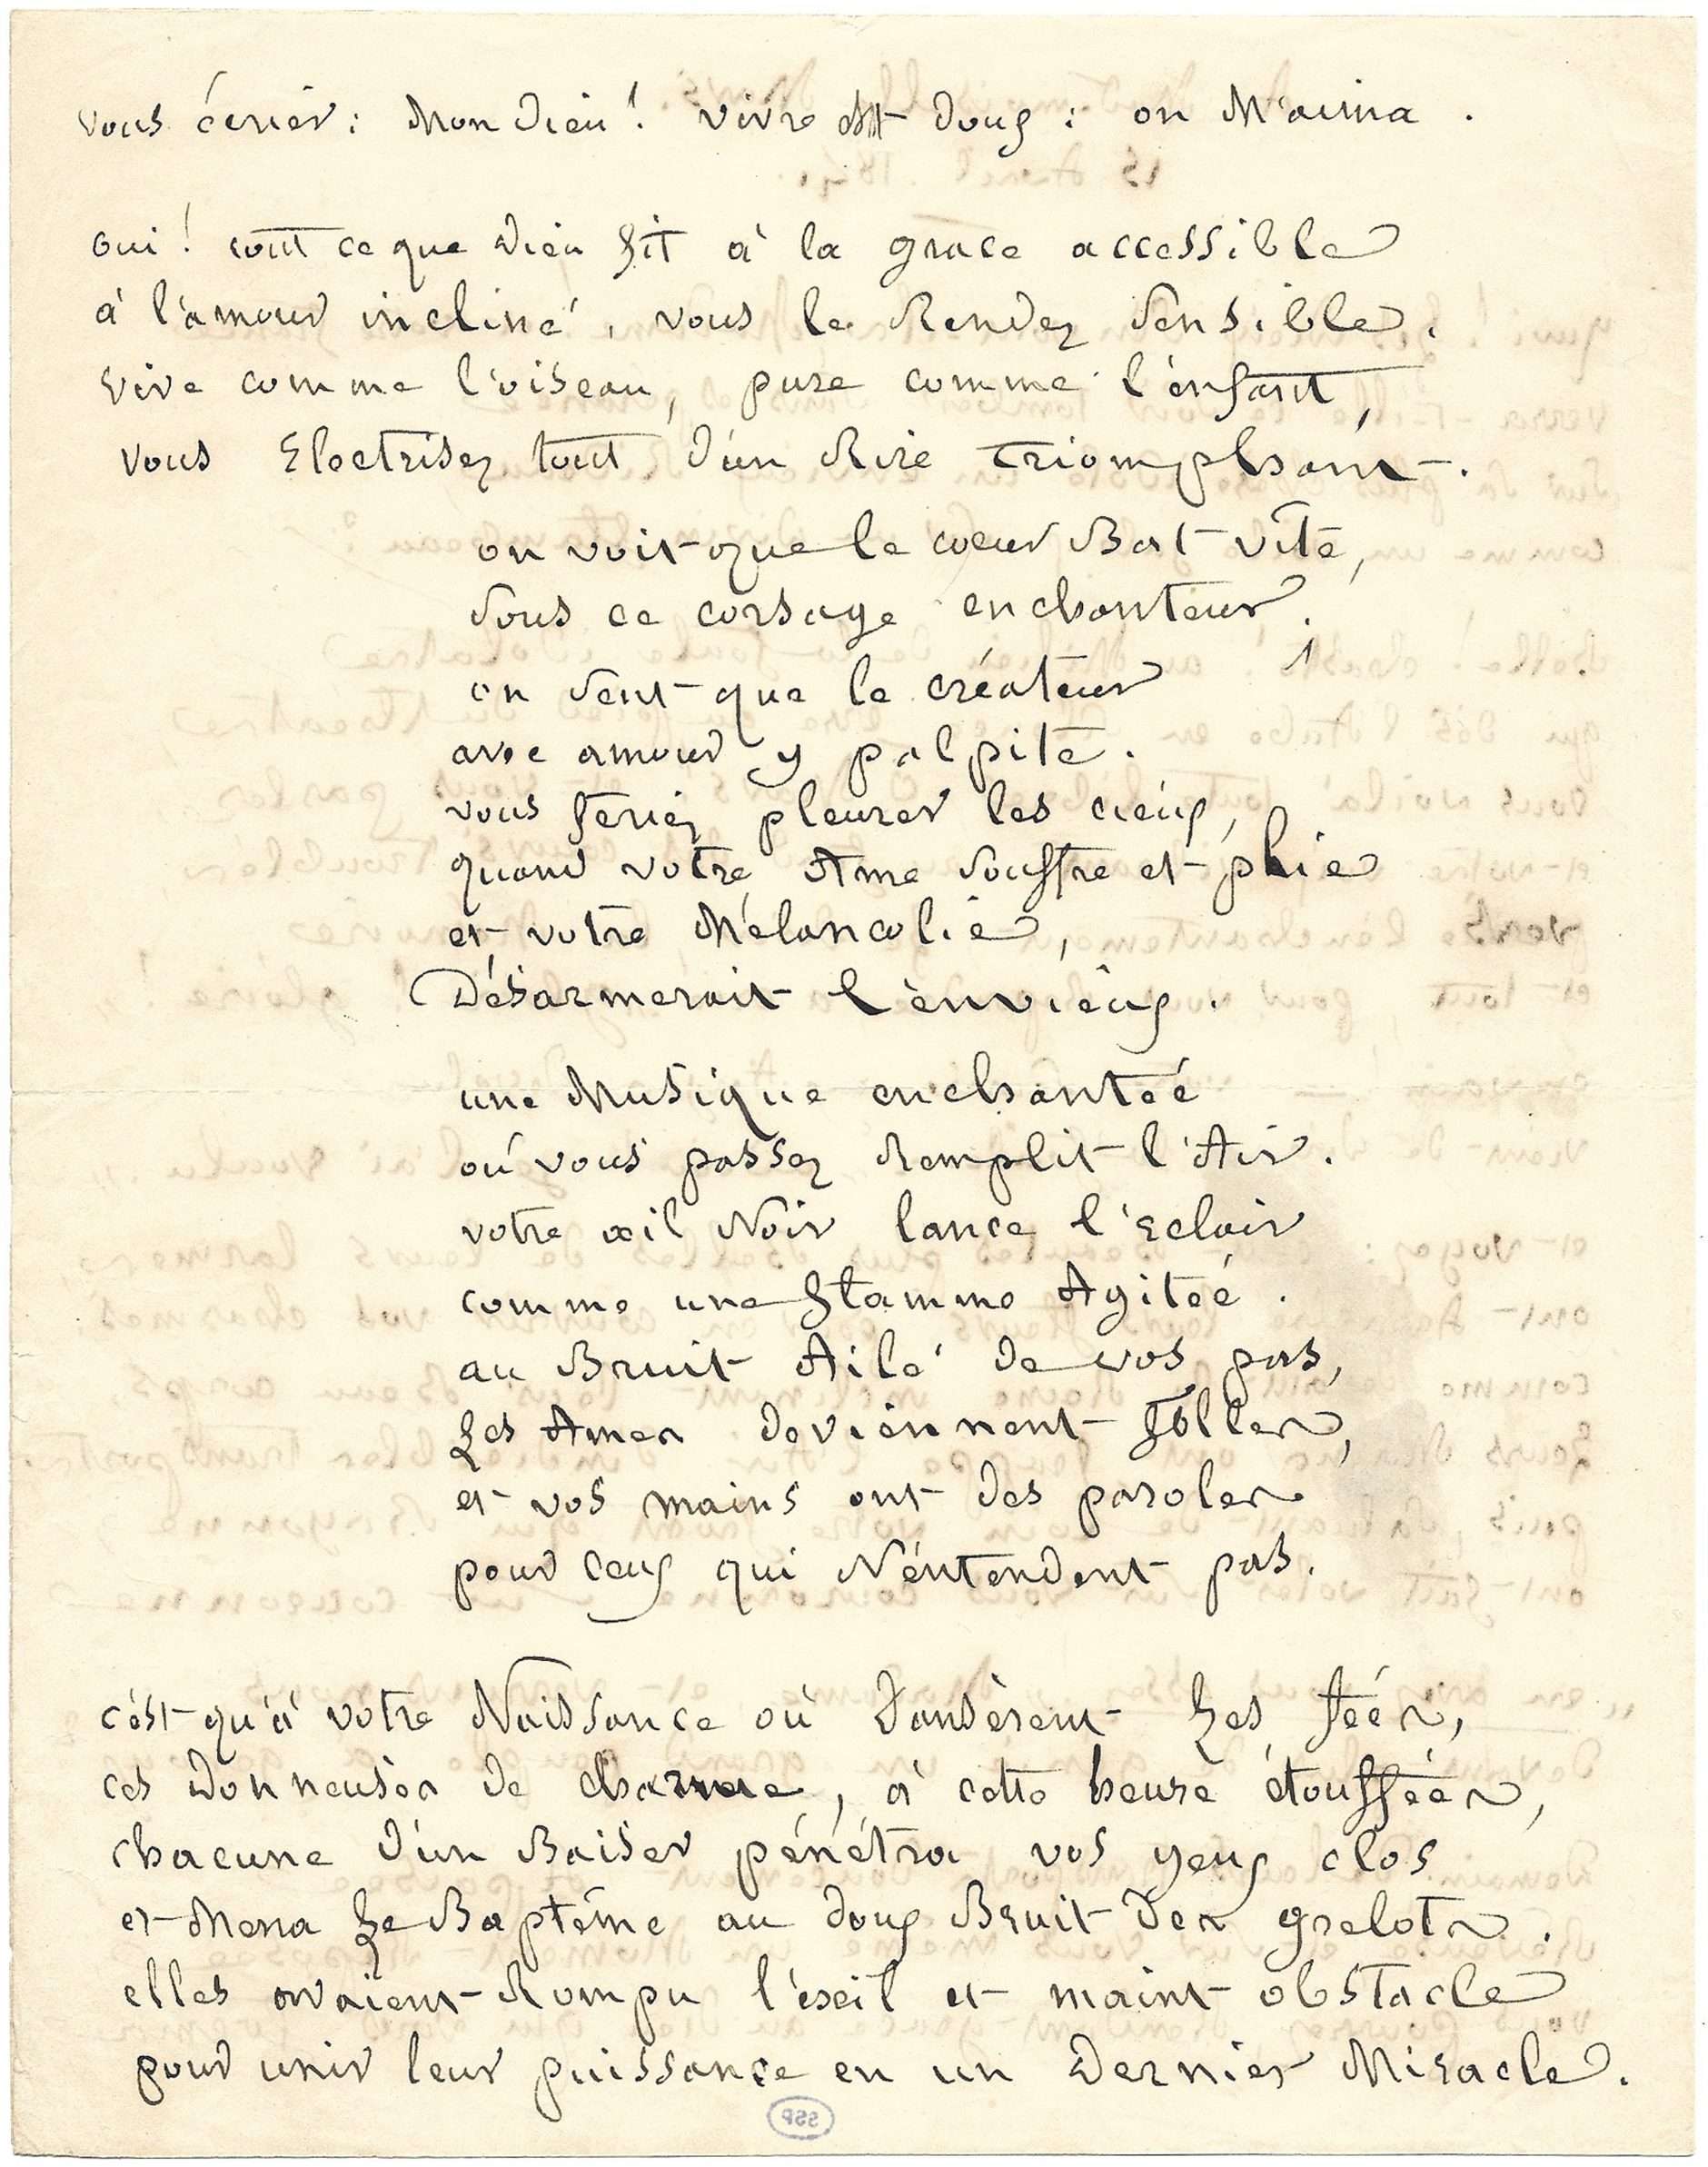 vous écrier : Mon Dieu ! vivre est doux : on M'aima .
oui ! tout ce que Dieu fit à la grace accessible
à l'amour incliné , vous le Rendez sensible .
vive comme l'oiseau , pure comme l'enfant ,
vous Electrisez tout d'un Rire triomphant .
on voit que le cœur Bat vîte ,
sous ce corsage enchanteur !
on sent que le créateur
avec amour y palpite .
vous feriez pleurer les cieux ,
quand votre Ame souffre et plie
et votre Mélancolie ,
Désarmerait l'envieux .
une Musique enchantée
où vous passez Remplit l'Air .
votre œil Noir lance l'Eclair
comme une flamme Agitée .
au Bruit Ailé de vos pas ,
Les Ames deviennent folles ,
et vos mains ont des paroles
pour ceux qui N'entendent pas .
c'est qu'à votre Naissance où Dansèrent Les fées ,
ces Donneuses de charme , à cette heure étouffées ,
chacune d'un Baiser pénétra vos yeux clos
et Mena Le Baptême au doux Bruit Des grelots .
elles avaient Rompu l'exil et maint obstacle
pour unir leur puissance en un Dernier Miracle .